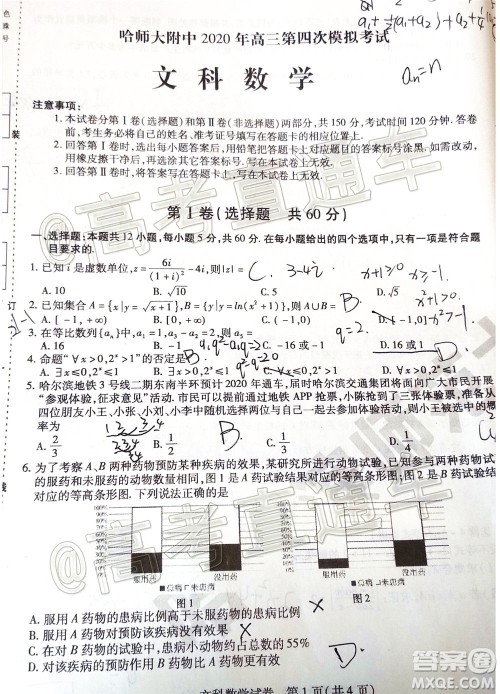 哈师大附中 2020 年高三第四次模拟考试
aₙ=n
文科数学
注意事项:
1. 本试卷分第Ⅰ卷(选择题)和第Ⅱ卷(非选择题)两部分,共 150 分,考试时间 120 分钟。答卷
前,考生务必将自己的姓名、准考证号填写在答题卡上相应的位置。
2. 回答第Ⅰ卷时,选出每小题答案后,用铅笔把答题卡上对应题目的答案标号涂黑。如需改动,
用橡皮擦干净后,再选涂其它答案标号。写在本试卷上无效。
3. 回答第Ⅱ卷时,将答案写在答题卡上,写在本试卷上无效。
第Ⅰ卷(选择题 共 60 分)
一、选择题:本题共 12 小题,每小题 5 分,共 60 分。在每小题给出的四个选项中,只有一项是符合题
目要求的.
1. 已知 i 是虚数单位,z=6i/(1+i)²-4i,则|z|= C. 3-4i x+1≥0 x≥-1
A. 10 B. √10 C. 5 D. √5
2. 已知集合 A={x|y=√(x+1)},B={x|y=ln(x+1)},则 A∪B= B
A. (-1,0) B. [-1,+∞) C. (-1,+∞) D.
3. 在等比数列{aₙ}中,a₁=1,a₃-a₂=2,则 a₅= D. q=2
A. B. 1 C. 16 D. 16 或 1
4. 命题“∀x>0,2ˣ>1”的否定是 B
A. ∃x≤0,2ˣ≤1 B. ∃x>0,2ˣ≤1 C. ∀x>0,2ˣ≤1 D. ∀x≤0,2ˣ≤1
5. 哈尔滨地铁 3 号线二期东南半环预计 2020 年通车,届时哈尔滨交通集团将面向广大市民开展
“参观体验,征求意见”活动,市民可以通过地铁 APP 抢票,小陈抢到了三张体验票,准备从
四位朋友小王、小张、小刘、小李中随机选择两位与自己一起去参加体验活动,则小王被选中的概
率为 B
A. 2/3 B. 1/2 C. 1/3 D. 1/6
6. 为了考察 A、B 两种药物预防某种疾病的效果,某研究所进行动物试验,已知参与两种药物试
的服药和未服药的动物数量相同,图 1 是 A 药试验结果对应的等高条形图;图 2 是 B 药试验结
对应的等高条形图. 下列说法正确的是
服用药 没用药 服用药 没用药
■患病 □未患病 ■患病 □未患病
图 1 图 2
A. 服用 A 药物的患病比例高于未服药物的患病比例 X
B. 服用 A 药物对预防该疾病没有效果 X
C. 在 B 药物的试验中,患病小动物约占总数的 55%
D. 对该疾病的预防作用 B 药物优于 A 药物
文科数学试卷 第 1 页(共 4 页)
@高考直通车
@高考直通车